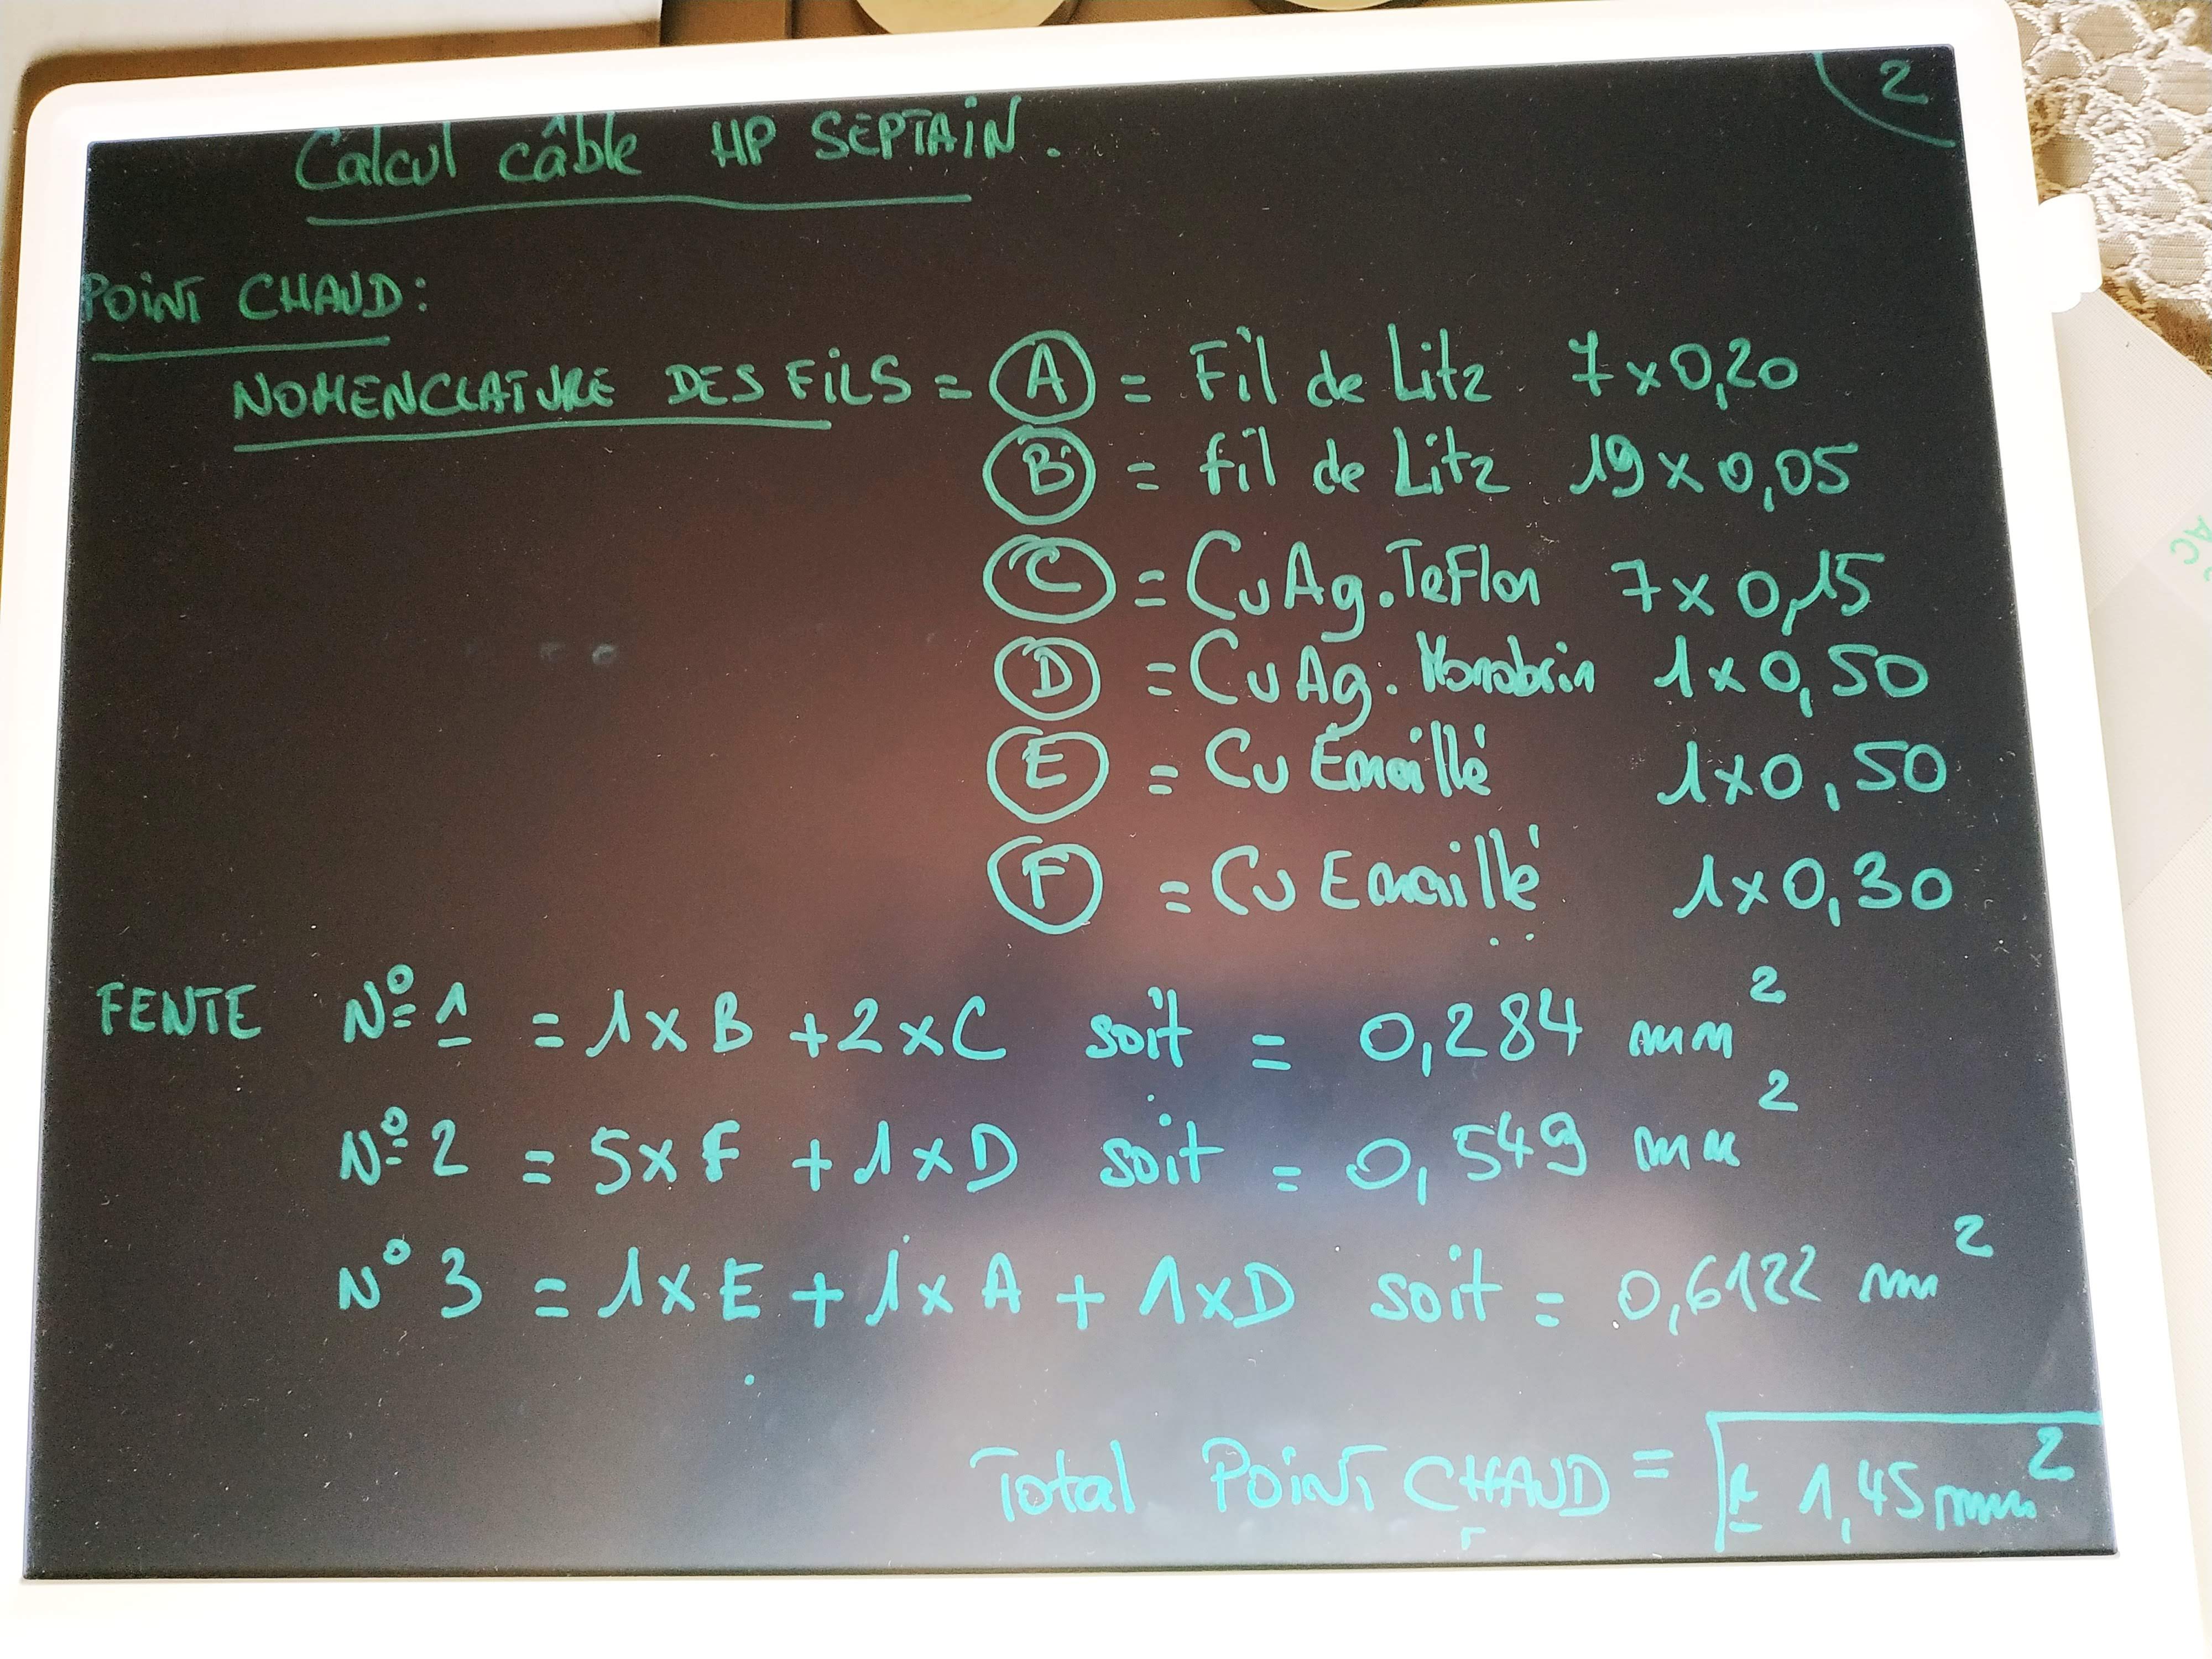 2
Calcul câble HP SEPTAIN.
POINT CHAUD:
NOMENCLATURE DES FILS = A = Fil de Litz 7x0,20
B = fil de Litz 19x0,05
C = CuAg.Teflon 7x0,15
D = CuAg. Monobrin 1x0,50
E = Cu Émaillé 1x0,50
F = Cu Emaillé 1x0,30
FENTE N° 1 = 1xB +2xC soit = 0,284 mm²
N° 2 = 5xF +1xD soit = 0,549 mm²
N° 3 = 1xE + 1xA + 1xD soit = 0,6122 mm²
Total POINT CHAUD = ± 1,45 mm²